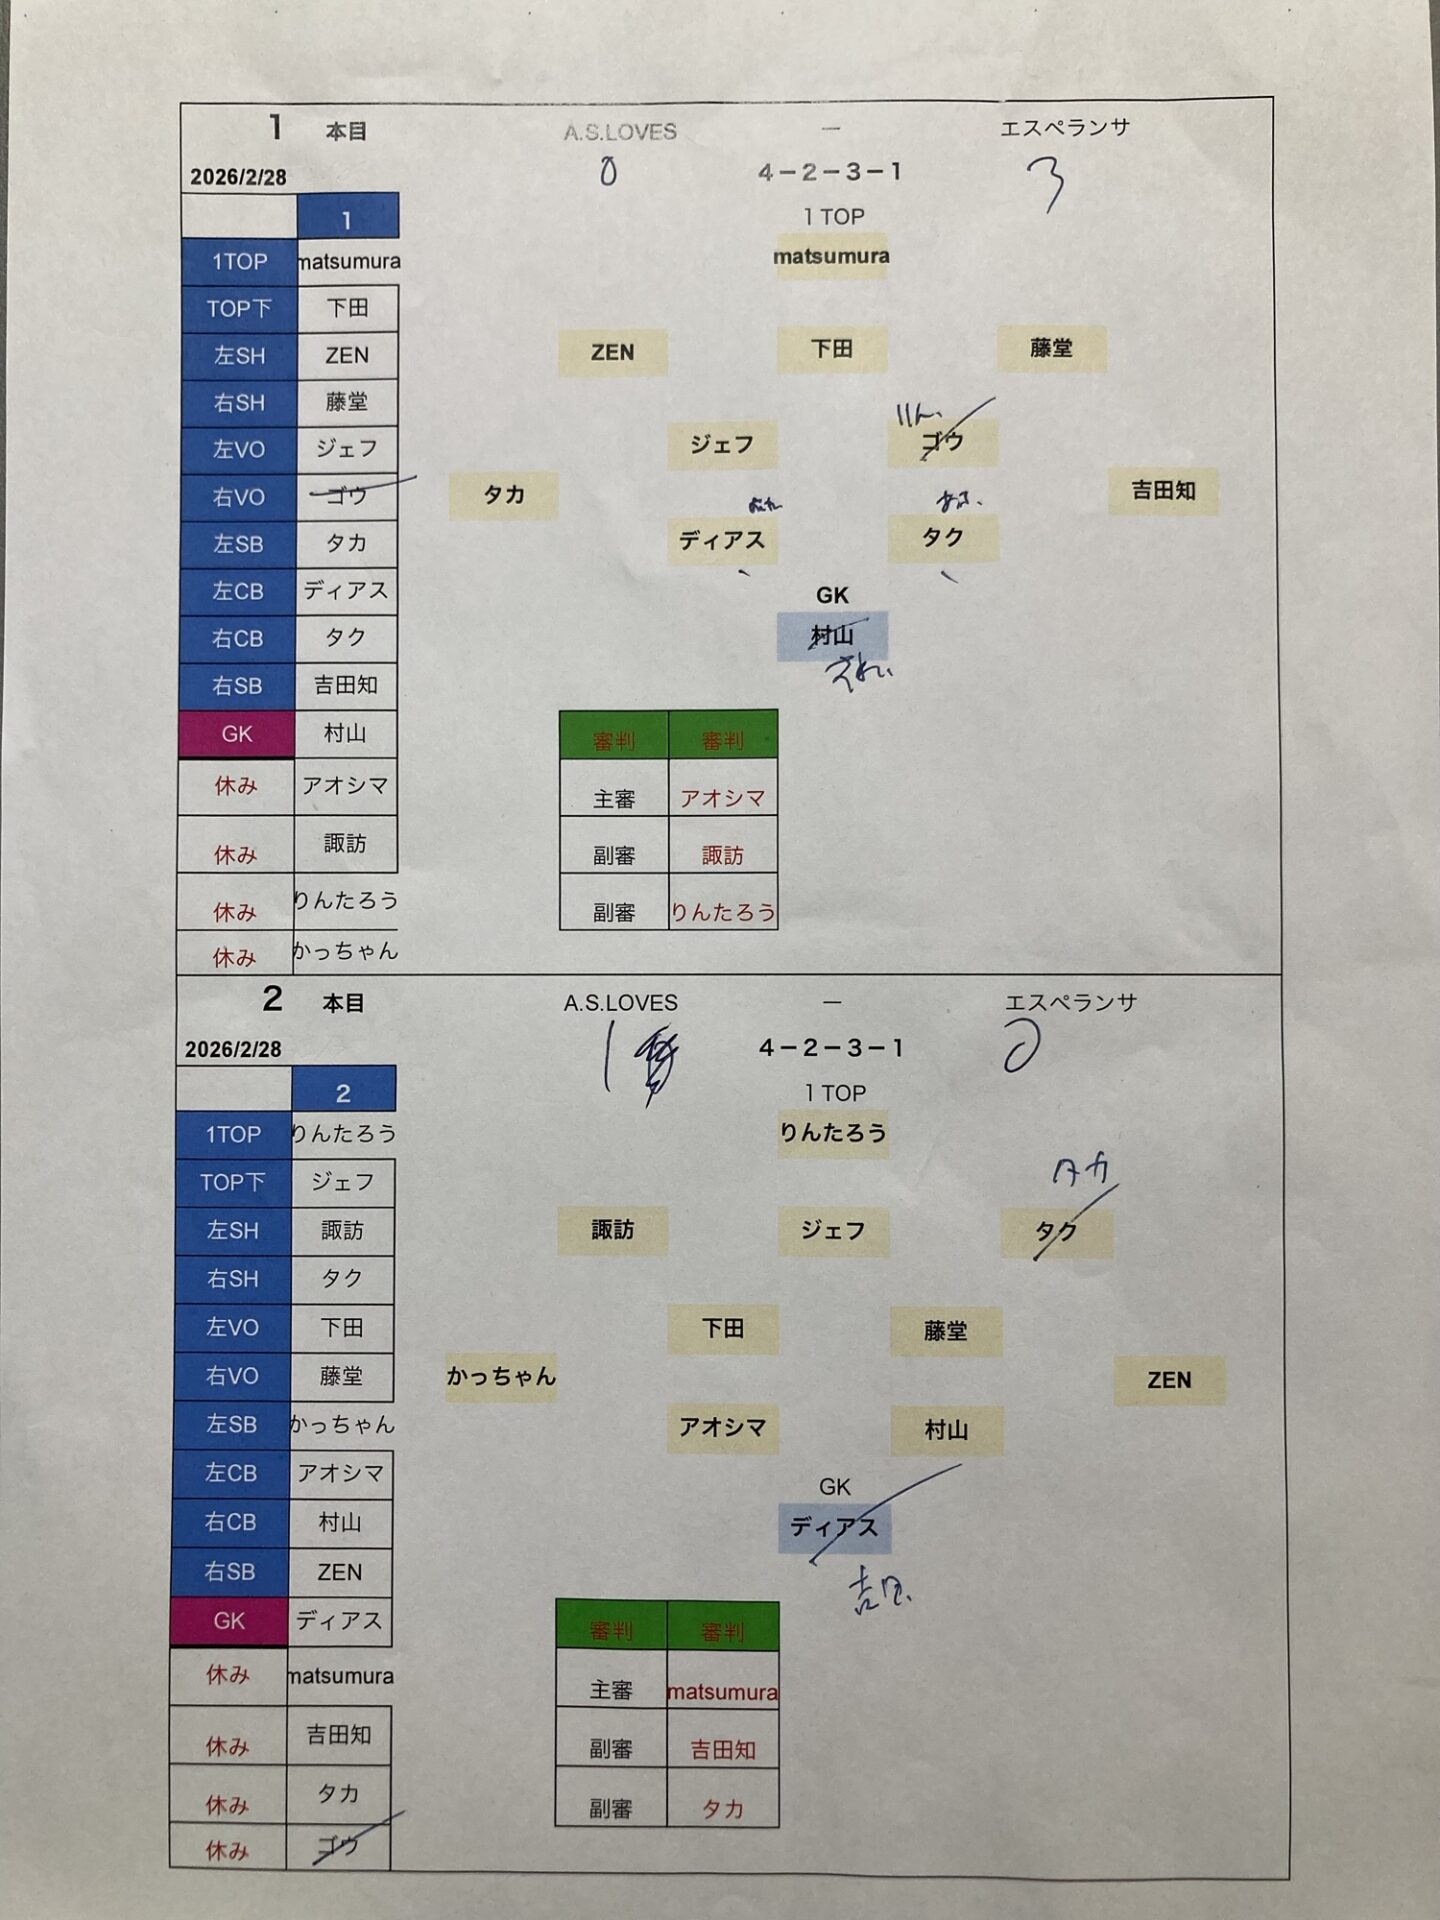 1 本目 A.S.LOVES ー エスペランサ
2026/2/28 0 4－2－3－1 3
1
1 TOP
1TOP matsumura
matsumura
TOP下 下田
左SH ZEN
ZEN 下田 藤堂
右SH 藤堂
りん
左VO ジェフ
ジェフ ゴウ
右VO ゴウ
タカ 吉田知
左SB タカ
ディアス タク
左CB ディアス
GK
右CB タク
村山
右SB 吉田知
GK 村山
審判 審判
休み アオシマ
主審 アオシマ
休み 諏訪
副審 諏訪
休み りんたろう
副審 りんたろう
休み かっちゃん
2 本目 A.S.LOVES ー エスペランサ
2026/2/28 1 4－2－3－1 0
2
1 TOP
1TOP りんたろう
りんたろう
タカ
TOP下 ジェフ
左SH 諏訪
諏訪 ジェフ タク
右SH タク
左VO 下田
下田 藤堂
右VO 藤堂
かっちゃん ZEN
左SB かっちゃん
アオシマ 村山
左CB アオシマ
GK
右CB 村山
ディアス
右SB ZEN
吉田
GK ディアス
審判 審判
休み matsumura
主審 matsumura
休み 吉田知
副審 吉田知
休み タカ
副審 タカ
休み ゴウ